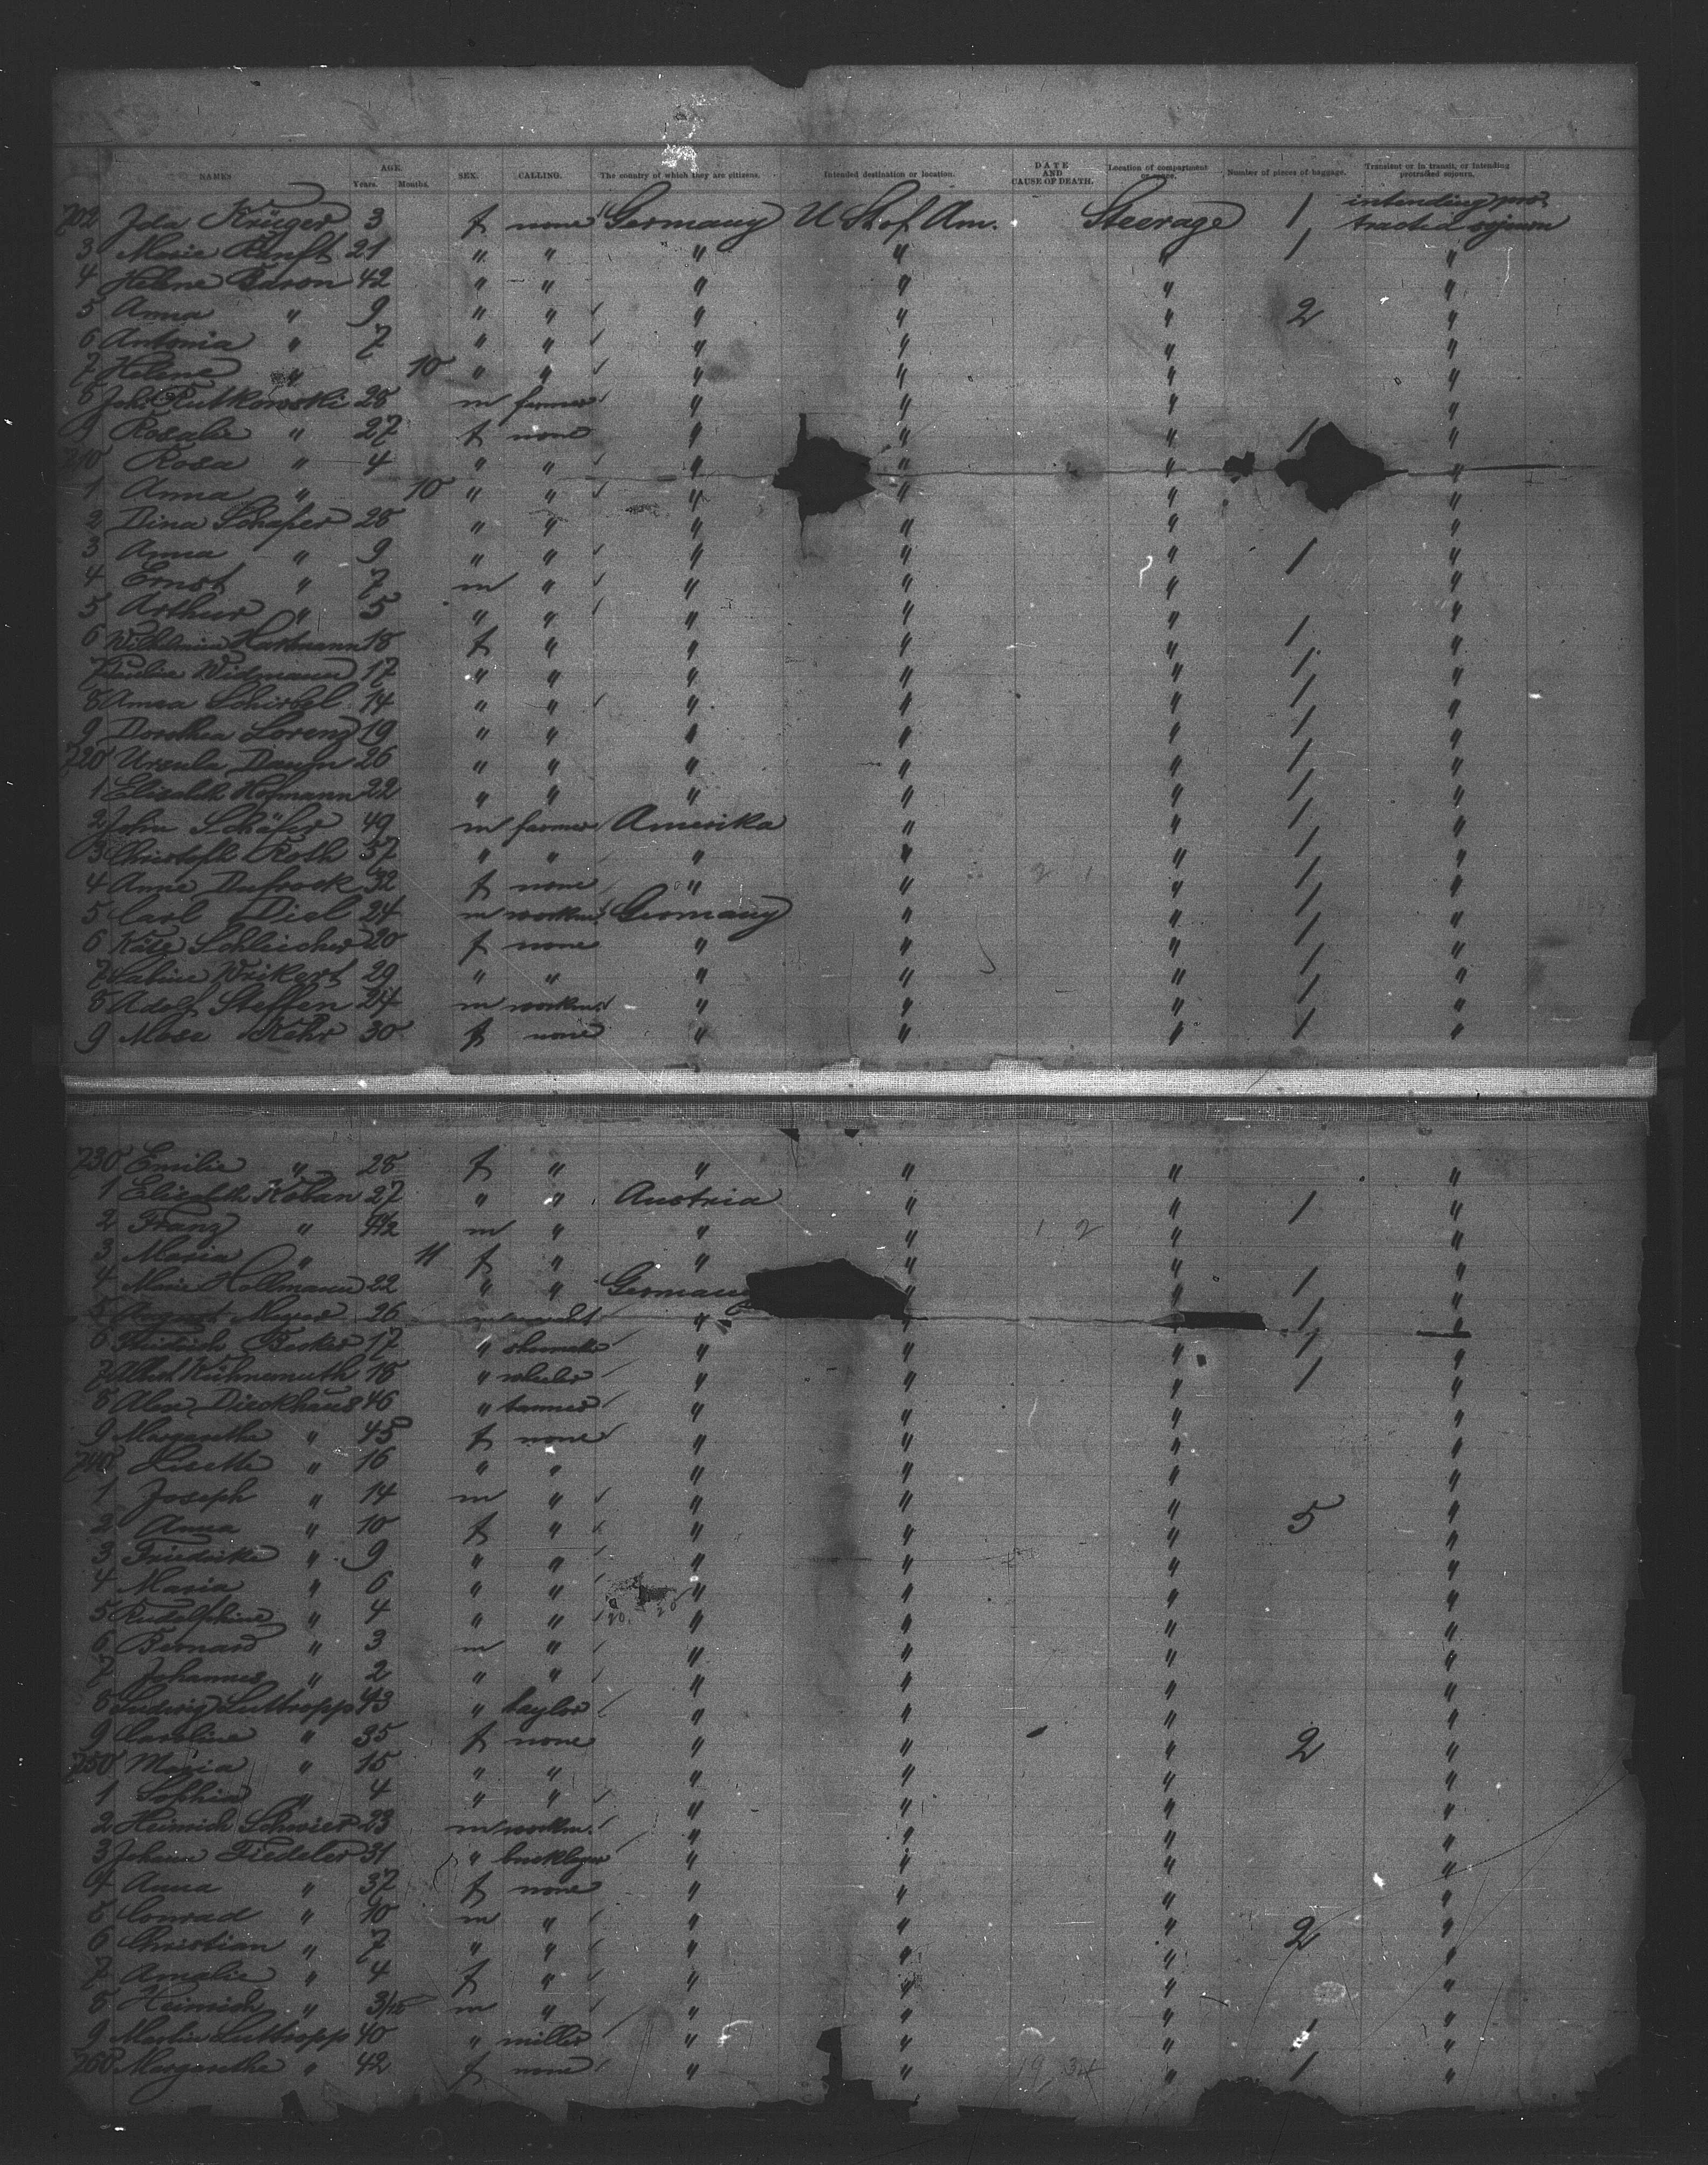 NAMES AGE. Years. Months. SEX. CALLING. The country of which they are citizens. Intended destination or location. DATE AND CAUSE OF DEATH. Location of compartment or space. Number of pieces of baggage. Transient or in transit, or intending protracted sojourn.
702 Ida Krüger 3 f none Germany U St of Am. Steerage 1 intending protracted sojourn
3 Marie Ranft 21 " " " " " 1 "
4 Helene Baron 42 " " " " " "
5 Anna " 9 " " " " " 2 "
6 Antonia " 7 " " " " " "
7 Helene " 10 " " " " " "
8 Joh. Rutkowski 28 m farmer " " " "
9 Rosalie " 27 f none " " " 1 "
710 Rosa " 4 " " " " " "
1 Anna " 10 " " " " " "
2 Dina Schafer 28 " " " " " "
3 Anna " 9 " " " " " 1 "
4 Ernst " 7 m " " " " "
5 Arthur " 5 " " " " " "
6 Wilhelmina Hartmann 18 f " " " " 1 "
7 Widmann 17 " " " " " 1 "
8 Anna Schirbel 14 " " " " " 1 "
9 Dorothea Lorenz 19 " " " " " 1 "
720 Ursula 26 " " " " " 1 "
1 Elisabeth Hofmann 22 " " " " " 1 "
2 John Schäfer 49 m farmer Amerika " " 1 "
3 Christoph Roth 57 " " " " " 1 "
4 Anna Dufrock 32 f none " " " 1 "
5 Carl Diel 24 m workm. Germany " " 1 "
6 Käte Schleicher 20 f none " " " 1 "
7 Sabine Weikert 29 " " " " " 1 "
8 Adolf Steffen 24 m workm. " " " 1 "
9 Mose Kehr 30 f none " " " 1 "
730 Emilie " 28 f " " " " "
1 Elisabeth Koban 27 " " Austria " " 1 "
2 Franz " 4 1/2 m " " " " "
3 Maria " 11 f " " " " "
4 Marie Hollmann 22 " " Germany " " 1 "
5 August Meyer 26 " " " 1 "
6 Friedrich Becker 17 " shumaker " " " 1 "
7 Albert Kühnemuth 18 " " " " 1 "
8 Alex Dieckhaus 46 " tanner " " " "
9 Margarethe " 45 f none " " " "
740 Lisette " 16 " " " " " "
1 Joseph " 14 m " " " " "
2 Anna " 10 f " " " " 5 "
3 Friedrike " 9 " " " " " "
4 Maria " 6 " " " " " "
5 Rudolphine " 4 " " " " " "
6 Bernard " 3 m " " " " "
7 Johannes " 2 " " " " " "
8 Ludwig Luttropp 43 " taylor " " " "
9 Caroline " 35 f none " " " 2 "
750 Maria " 15 " " " " " "
1 Sophia " 4 " " " " " "
2 Heinrich Schwier 23 m workm. " " " "
3 Johann Tiedeler 31 " bricklayer " " " "
4 Anna " 37 f none " " " "
5 Conrad " 10 m " " " " "
6 Christian " 7 " " " " " 2 "
7 Amalie " 4 f " " " " "
8 Heinrich " m " " " " "
9 Martin Luttropp 40 " miller " " " 1 "
760 Margarethe " 42 f none " " " 1 "